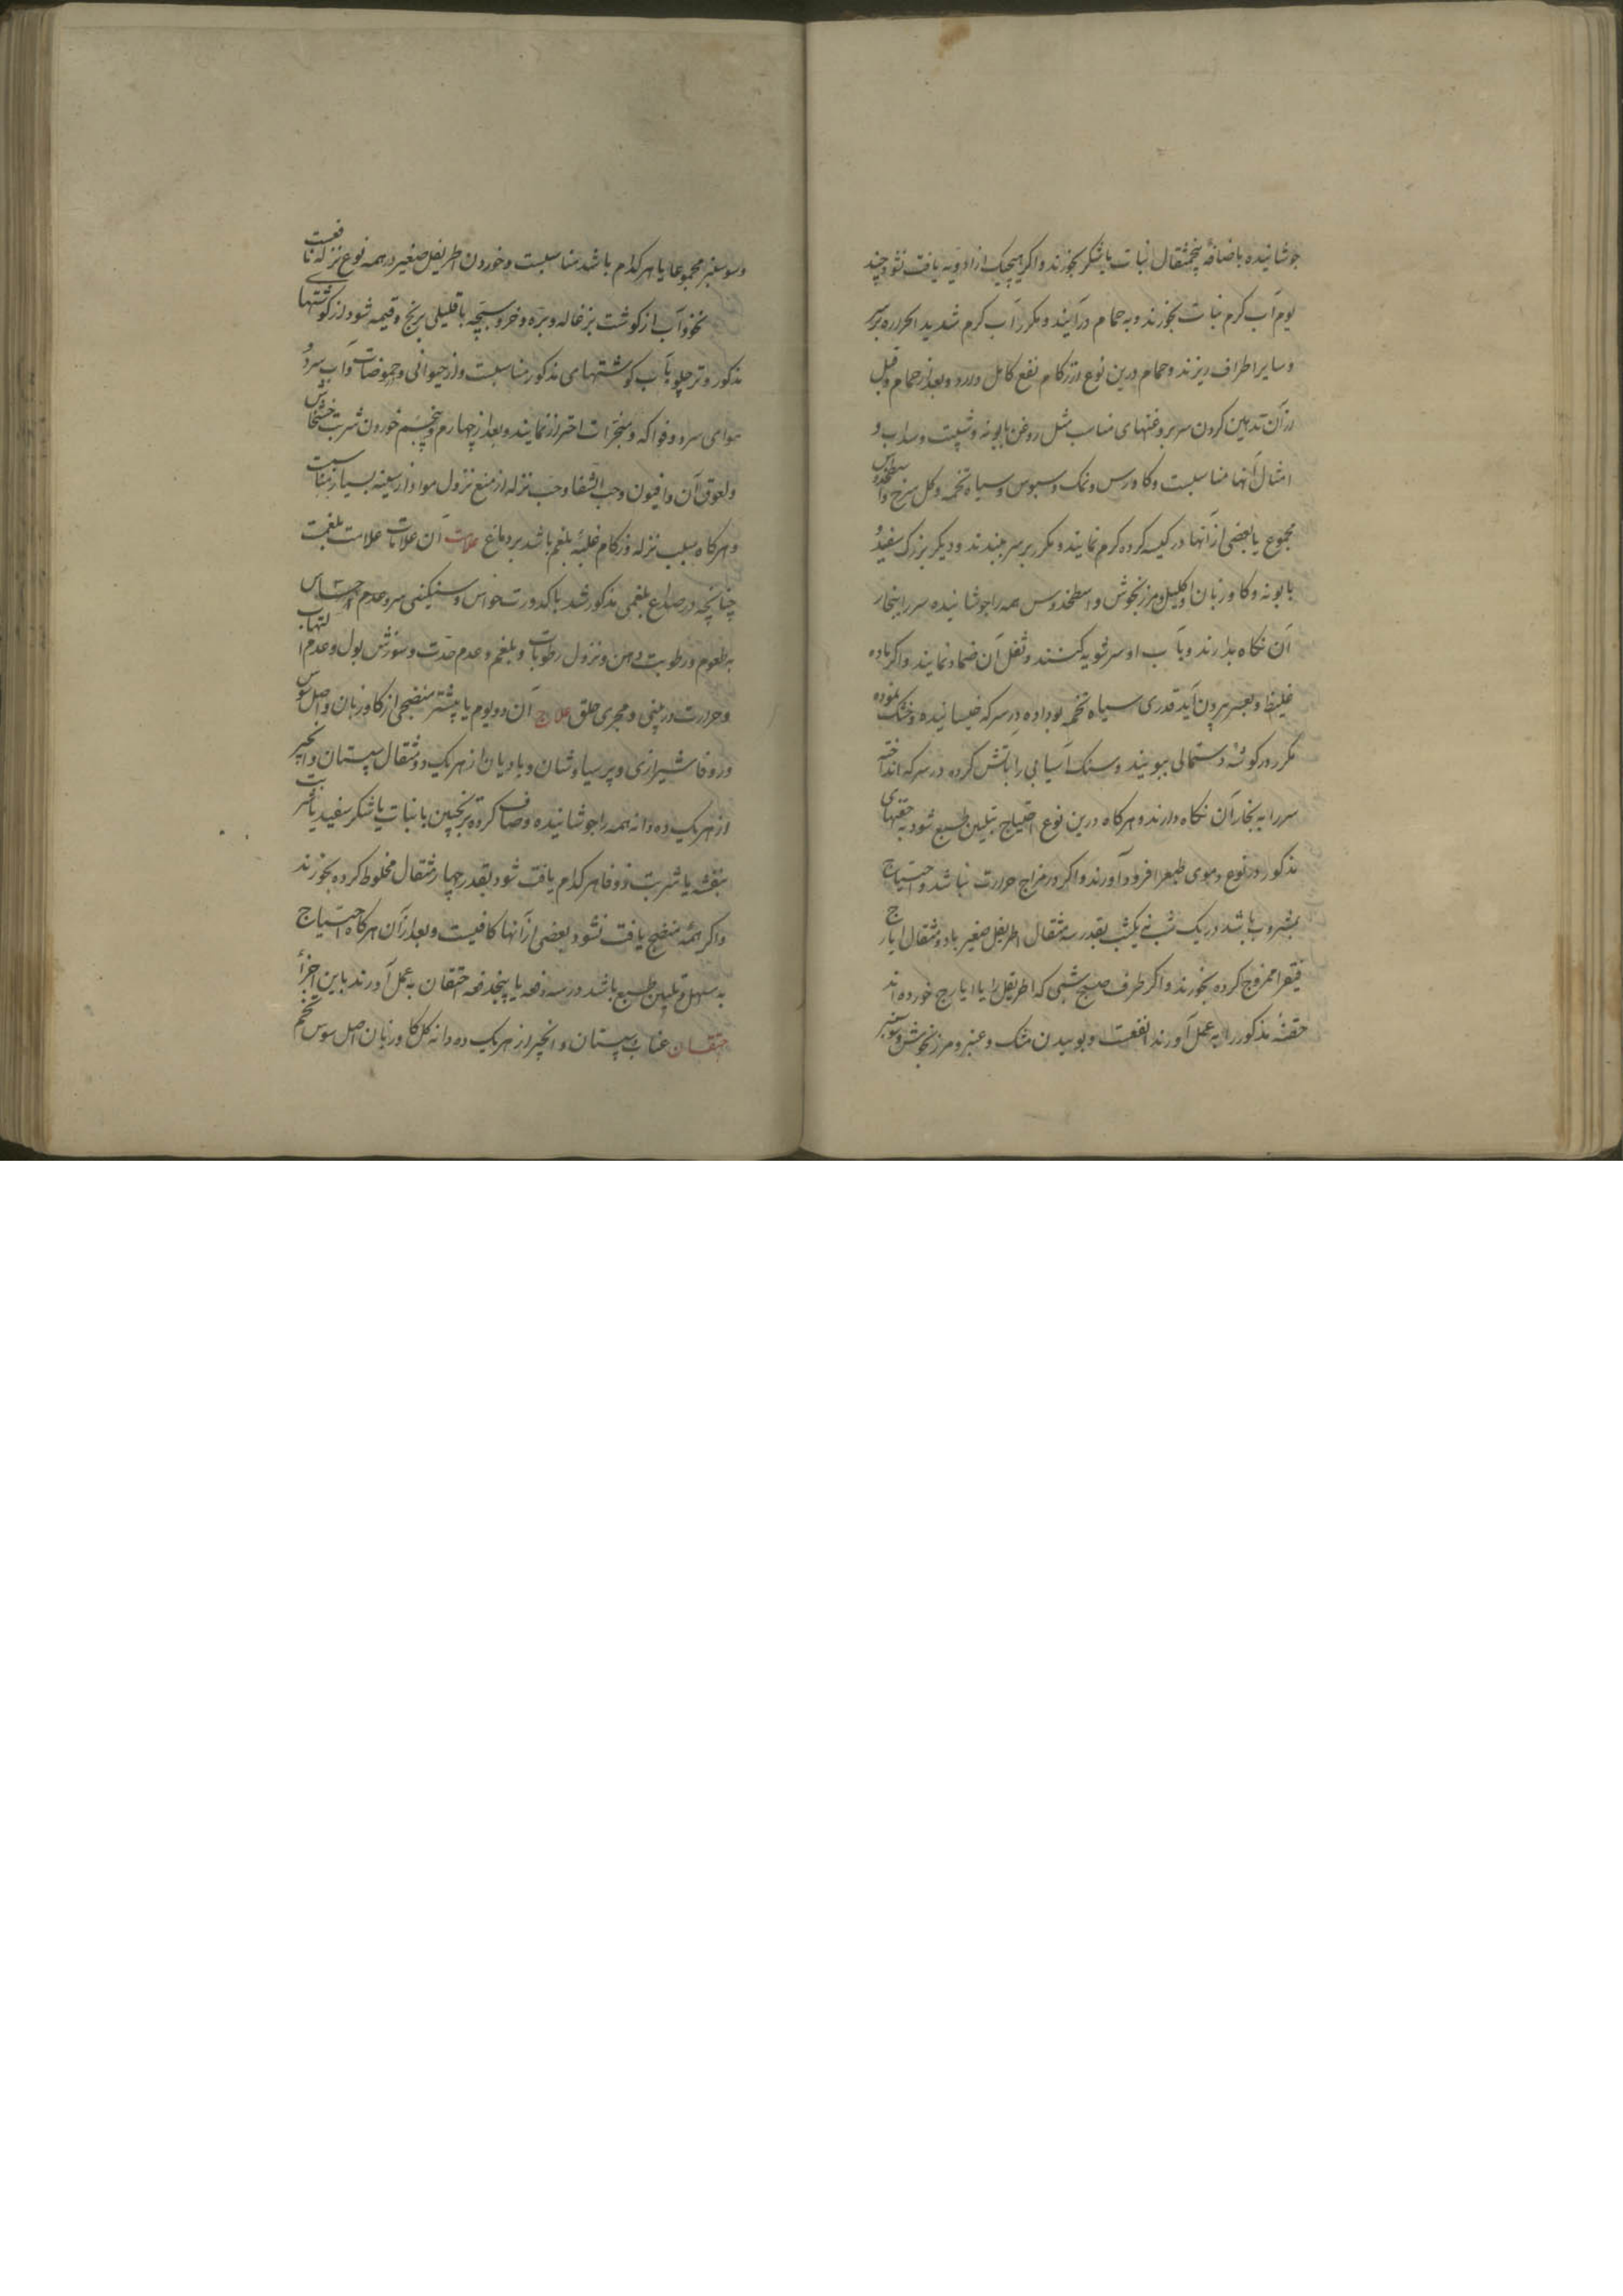 جوشانیده باضافهٔ پنجمثقال نبات یا شکر بخورند و اکر هیچیک از ادویه یافت نشود چند
یوم آب کرم نبات بخورند و به حمام درآیند و مکرر آب کرم شدید الحراره بر سر
و سایر اطراف ریزند و حمام درین نوع از زکام نفع کامل دارد و بعد از حمام و قبل
از آن تدهین کردن سر بروغنهای مناسب مثل روغن بابونه و شبت و سداب و
امثال آنها مناسبست و کاورس و نمک و سبوس و سیاه تخمه و کل سرخ و اسطخدوس
مجموع یا بعضی از آنها در کیسه کرده کرم نمایند و مکرر بر سر ببندند و دیکر بزرک سفید و
بابونه و کاوزبان و اکلیل و مرزنجوش و اسطخدوس همه را جوشانیده سر را ببخار
آن نکاه بدارند و بآب او سرشویه کنند و ثفل آن ضماد نمایند و اکر ماده
غلیظ و بعسر بیرون آید قدری سیاه تخمه بو داده در سرکه خیسانیده و خشک نموده
مکرر در کوشهٔ دستمالی ببویند و سنک آسیابی را بآتش کرده در سرکه انداخته
سر را به بخار آن نکاه دارند و هرکاه درین نوع احتیاج بتلیین طبع شود به حقنهای
مذکور در نوع دموی طبع را فرود آورند و اکر در مزاج حرارت نباشد و احتیاج
بمشروب باشد در یک شب نی یکشب بقدر سه مثقال اطریفل صغیر با دو مثقال ایارج
فیقرا ممزوج کرده بخورند و اکر طرف صبح شبی که اطریفل را با ایارج خورده اند
حقنهٔ مذکور را به عمل آورند انفعست و بوییدن مشک و عنبر و مرزنجوش و سوسنبر
و سوسنبر مجموعا یا هرکدام باشد مناسبست و خوردن اطریفل صغیر در همه نوع نزله نافعست
نخودآب از کوشت بزغاله و بره و خروسبچه با قلیلی برنج و قیمه شود از کوشتهای
مذکور و ترحلو بآب کوشتهای مذکور مناسبست و از حیوانی و حموضات و آب سرد و
هوای سرد و فواکه و مبخرات احتراز نمایند و بعد از چهارم و پنجم خوردن شربت خشخاش
و لعوق آن و افیون و حب الشفا و حب نزله از منع نزول مواد از سینه بسیار مناسبست
و هرکاه سبب نزله و زکام غلبهٔ بلغم باشد بر دماغ علامت آن علامات علامت بلغمست
چنانچه در صداع بلغمی مذکور شد با کدورت حواس و سنکینی سر و عدم احساس
به طعوم و رطوبت دهن و نزول رطوبات و بلغم و عدم حدت و سوزش بول و عدم التهاب
و حرارت در بینی و مجری حلق علاج آن دو یوم یا بیشتر منضجی از کاوزبان و اصل سوس
و زوفا شیرازی و پرسیاوشان و بادیان از هر یک دو مثقال سپستان و انجیر
از هر یک ده دانه همه را جوشانیده و صاف کرده ترنجبین با نبات یا شکر سفید یا شربت
بنفشه یا شربت زوفا هرکدام یافت شود بقدر چهار مثقال مخلوط کرده بخورند
و اکر همهٔ منضج یافت نشود بعضی از آنها کافیست و بعد از آن هرکاه احتیاج
به مسهل و تلیین طبع باشد در سه دفعه یا پنجدفعه احتقان به عمل آورند باین اجزا
احتقان عناب سپستان و انجیر از هر یک ده دانه کل کاوزبان اصل سوس تخم